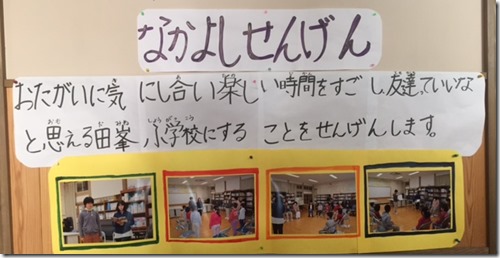 なかよしせんげん
おたがいに気にし合い楽しい時間をすごし、友達っていいな
と思える田峯小学校にすることをせんげんします。